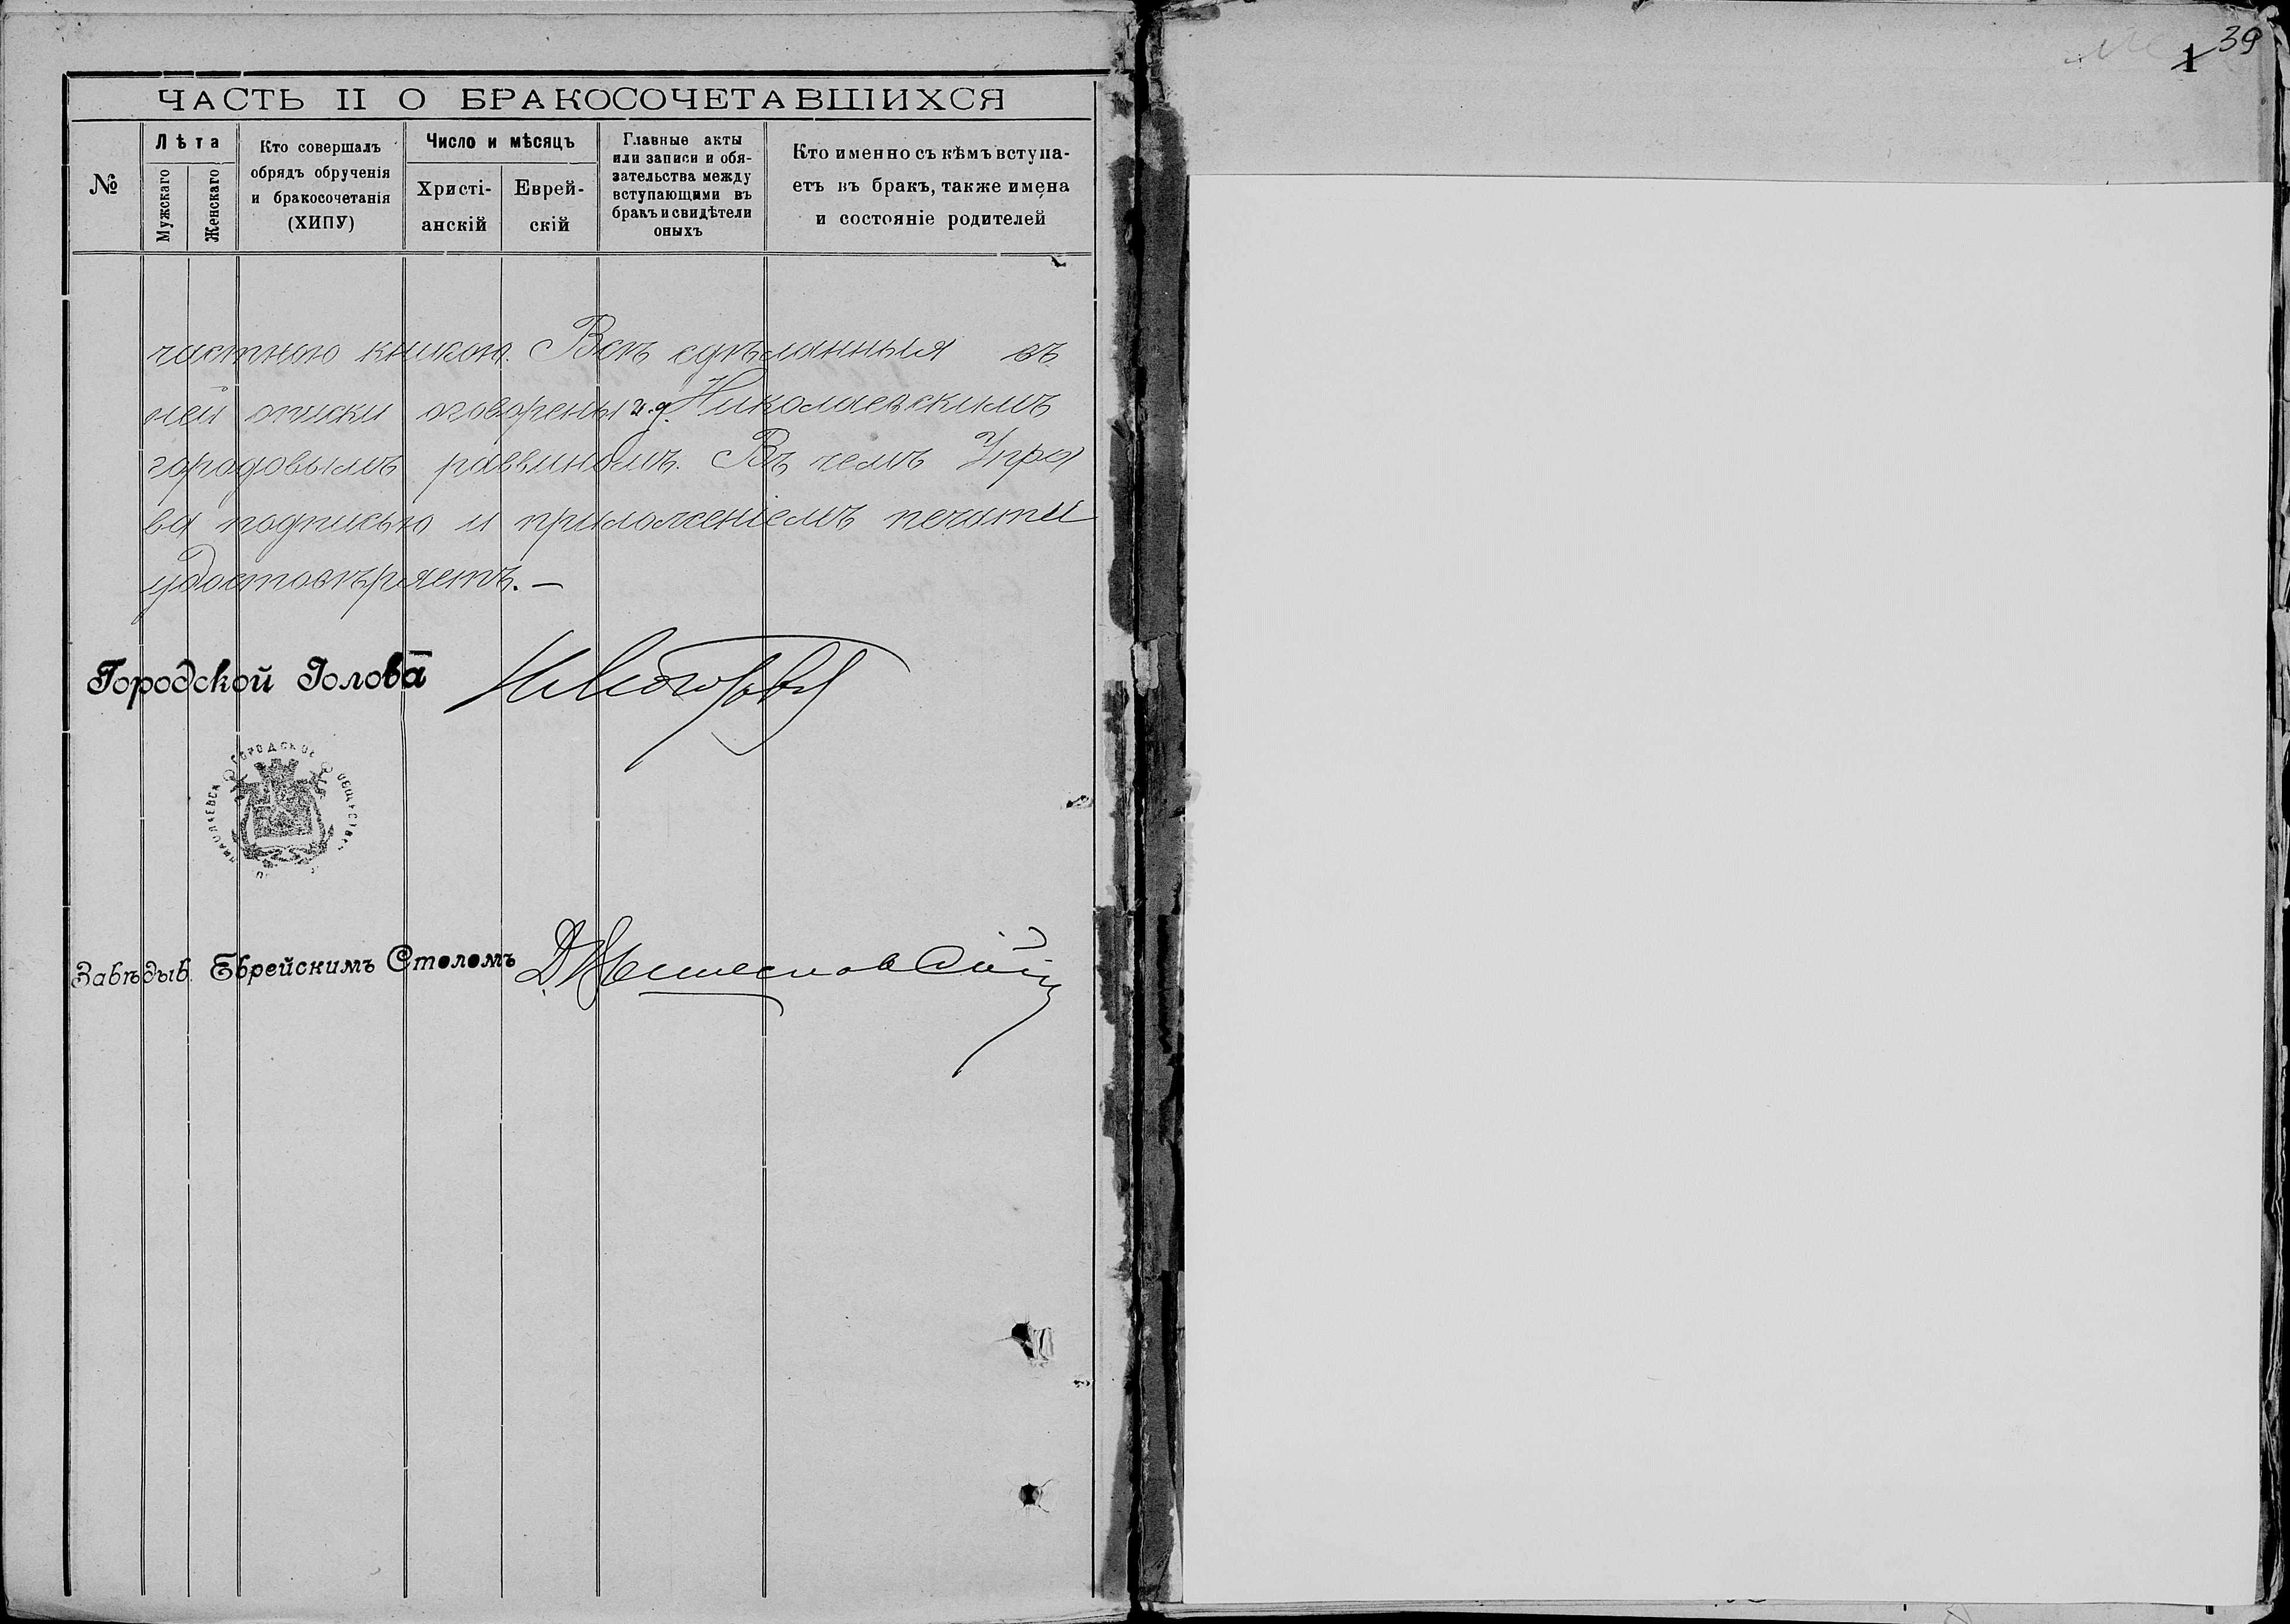 ЧАСТЬ II О БРАКОСОЧЕТАВШИХСЯ
№
Лѣта
Мужскаго
Женскаго
Кто совершалъ
обрядъ обрученія
и бракосочетанія
(ХИПУ)
Число и мѣсяцъ
Христі-
анскій
Еврей-
скій
Главные акты
или записи и обя-
зательства между
вступающими въ
бракъ и свидѣтели
оныхъ
Кто именно съ кѣмъ вступа-
етъ въ бракъ, также имена
и состояніе родителей
частною книгою. Всѣ сдѣланныя въ
ней описки оговорены и.д. Николаевскимъ
городовымъ раввиномъ. Въ чемъ Упра
ва подписью и приложеніемъ печати
удостовѣряетъ. —
Городской Голова
Завѣдыв. Еврейскимъ Столомъ
39
1